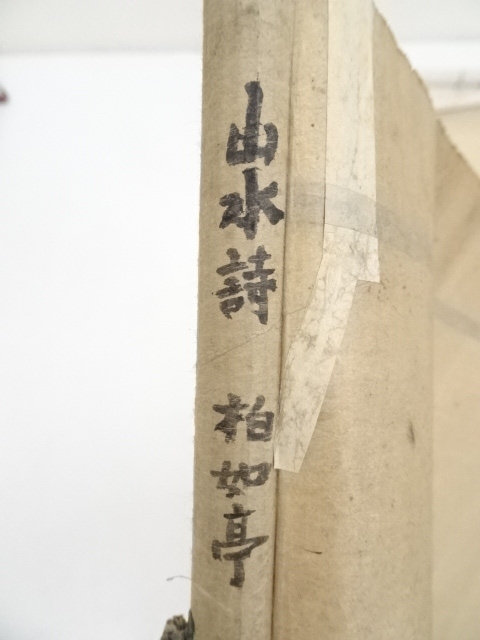 山水詩 柏如亭